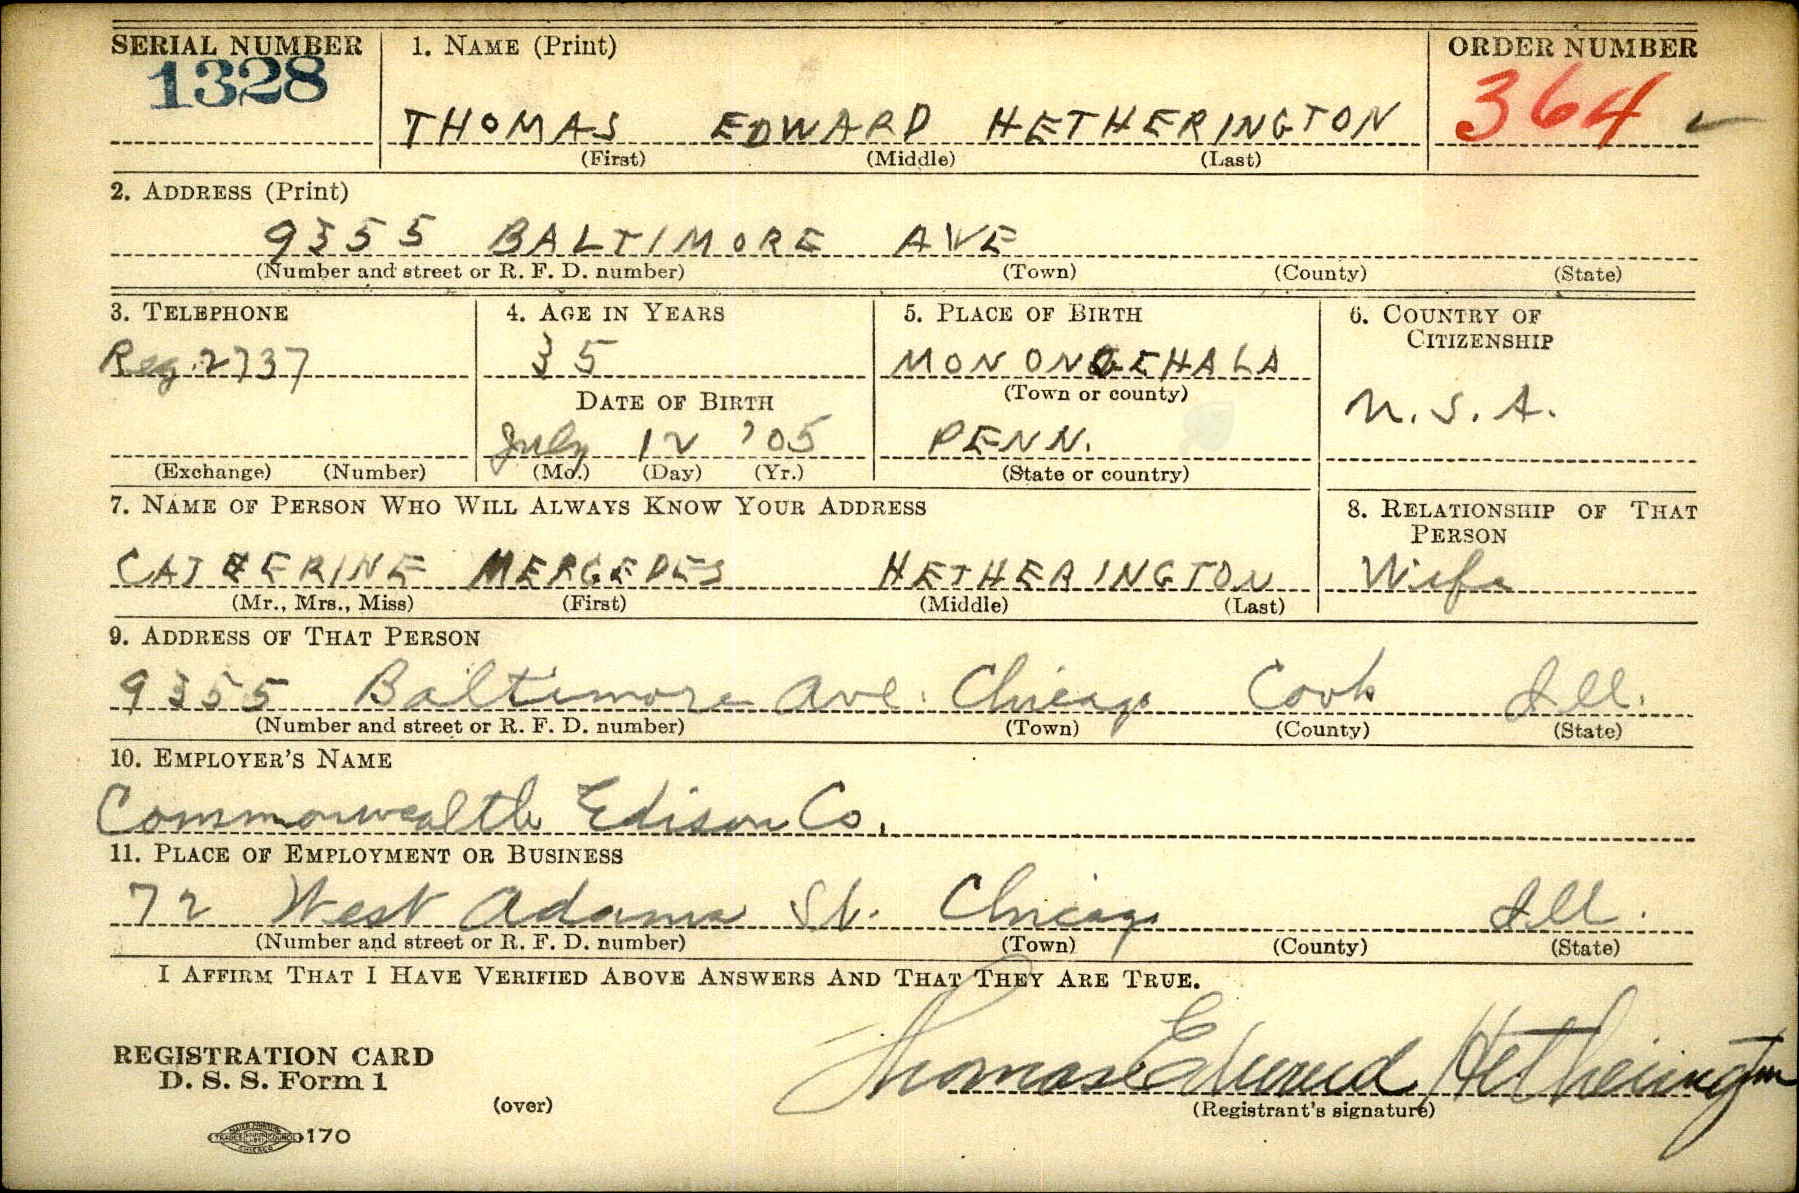 SERIAL NUMBER 1. NAME (Print) ORDER NUMBER
1328 THOMAS EDWARD HETHERINGTON 364
(First) (Middle) (Last)
2. ADDRESS (Print)
9355 BALTIMORE AVE
(Number and street or R. F. D. number) (Town) (County) (State)
3. TELEPHONE 4. AGE IN YEARS 5. PLACE OF BIRTH 6. COUNTRY OF CITIZENSHIP
Reg. 2737 35 MONONGEHALA U.S.A.
DATE OF BIRTH (Town or county)
July 12 '05 PENN.
(Exchange) (Number) (Mo.) (Day) (Yr.) (State or country)
7. NAME OF PERSON WHO WILL ALWAYS KNOW YOUR ADDRESS 8. RELATIONSHIP OF THAT PERSON
CATHERINE MERCEDES HETHERINGTON Wife
(Mr., Mrs., Miss) (First) (Middle) (Last)
9. ADDRESS OF THAT PERSON
9355 Baltimore Ave. Chicago Cook Ill.
(Number and street or R. F. D. number) (Town) (County) (State)
10. EMPLOYER'S NAME
Commonwealth Edison Co.
11. PLACE OF EMPLOYMENT OR BUSINESS
72 West Adams St. Chicago Ill.
(Number and street or R. F. D. number) (Town) (County) (State)
I AFFIRM THAT I HAVE VERIFIED ABOVE ANSWERS AND THAT THEY ARE TRUE.
Thomas Edward Hetherington
REGISTRATION CARD
D. S. S. Form 1
(over) (Registrant's signature)
170